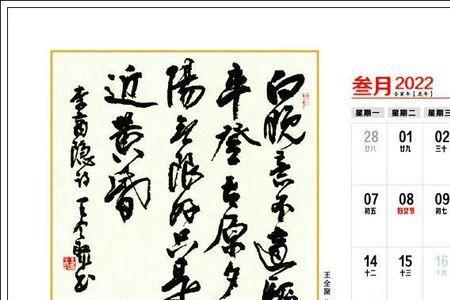 向晚意不適
車登古原夕
陽無限好只是
近黄昏
李商隐诗 王全聚书
王全聚
叁月2022
壬寅年【虎年】
星期一 星期二 星期三
28 01 02
廿八 廿九 三十
07 08 09
初五 妇女节 初七
14 15 16
十二 十三 十四